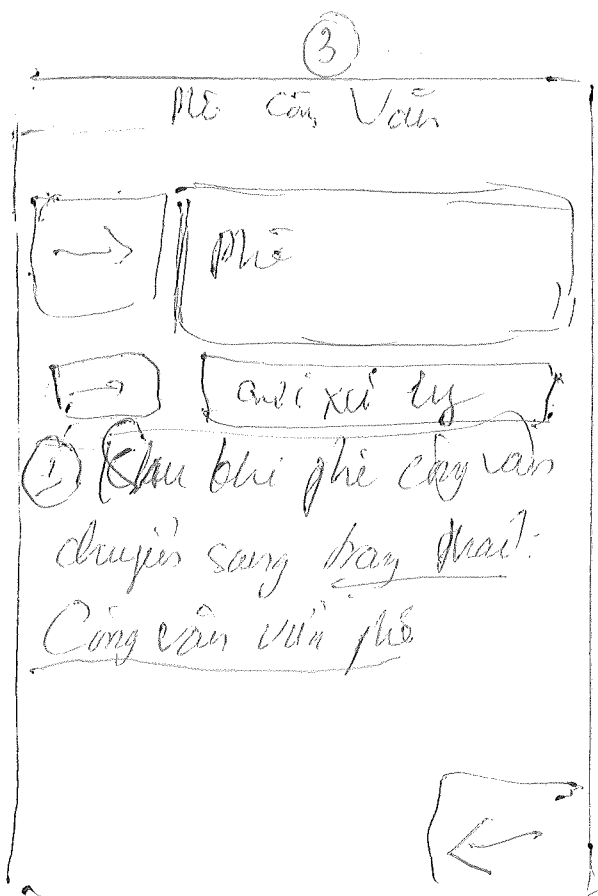 3
Phê Công Văn
Phê
Gửi xử lý
1 Sau khi phê công văn
chuyển sang trạng thái:
Công văn vừa phê